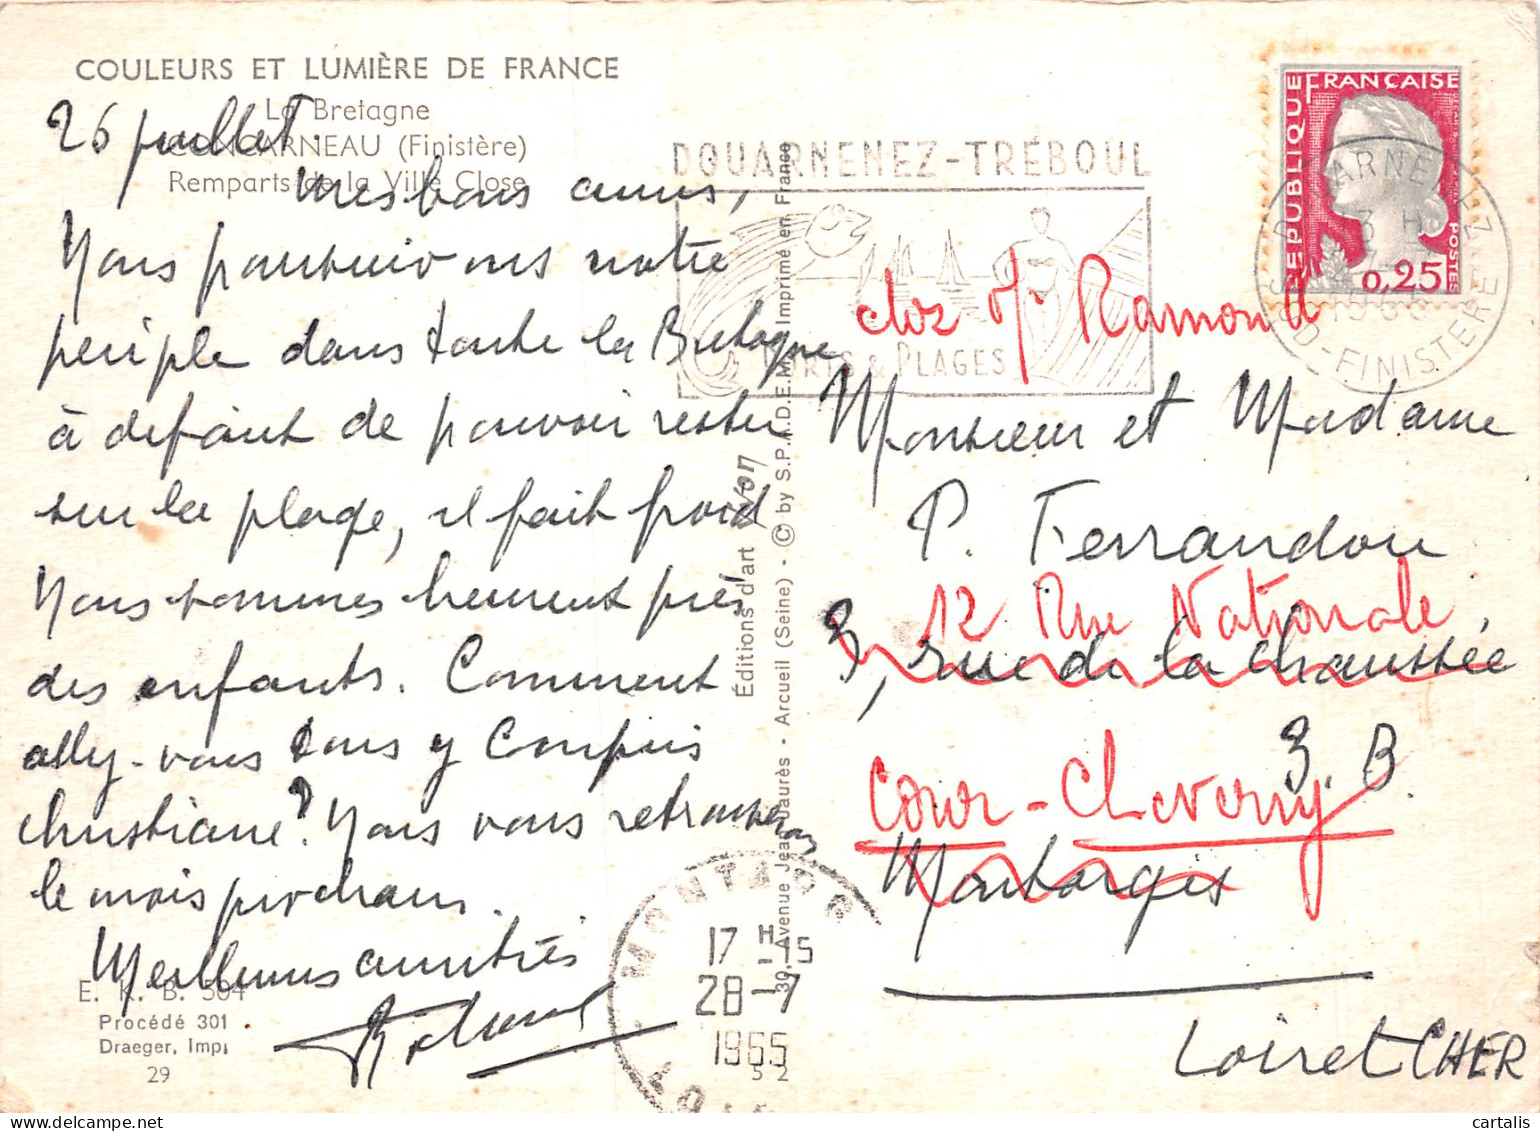 COULEURS ET LUMIÈRE DE FRANCE
La Bretagne
CONCARNEAU (Finistère)
Remparts de la Ville Close
26 juillet.
Mes bons amis,
Nous poursuivons notre
périple dans toute la Bretagne
à défaut de pouvoir rester
sur la plage, il fait froid
Nous sommes heureux près
des enfants. Comment
allez-vous tous y compris
Christiane? Nous vous retrouverons
le mois prochain.
Meilleures amitiés
E. K. B. 504
Procédé 301
Draeger, Imp.
29
Éditions d'art Yvon
30, Avenue Jean-Jaurès - Arcueil (Seine) - © by S.P.A.D.E.M. Imprimé en France
DOUARNENEZ-TRÉBOUL
PORTS & PLAGES
RÉPUBLIQUE FRANÇAISE
POSTES
0,25
DOUARNENEZ
SUD-FINISTERE
chez Mr Ramond
Monsieur et Madame
P. Ferrandou
12 Rue Nationale
3, rue de la chaussée
3. B.
Cour-Cheverny
Montargis
Loiret CHER
MONTARG
17 H -15
28-7
1965
52
cartalis